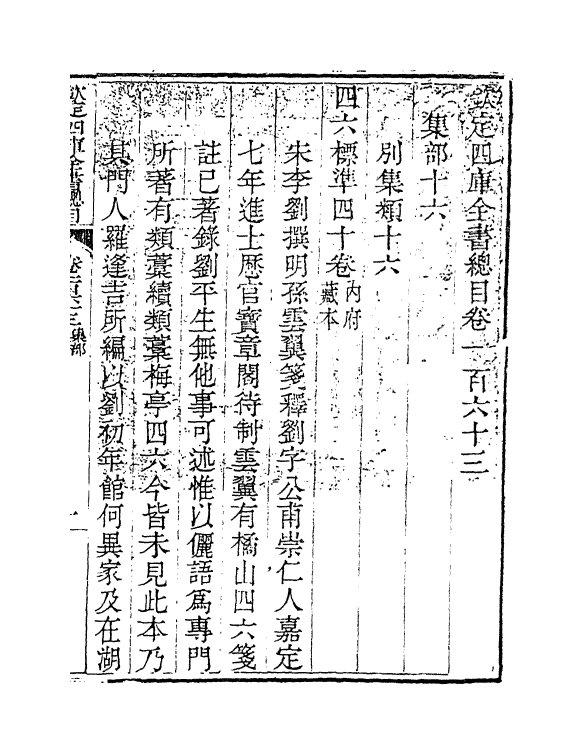 欽定四庫全書總目卷一百六十三
集部十六
別集類十六
四六標準四十卷內府藏本
宋李劉撰明孫雲翼箋釋劉字公甫崇仁人嘉定
七年進士歷官寶章閣待制雲翼有橘山四六箋
註已著錄劉平生無他事可述惟以儷語爲專門
所著有類藁續類藁梅亭四六今皆未見此本乃
其門人羅逢吉所編以劉初年館何異家及在湖
欽定四庫全書總目 卷一百六十三 集部 一